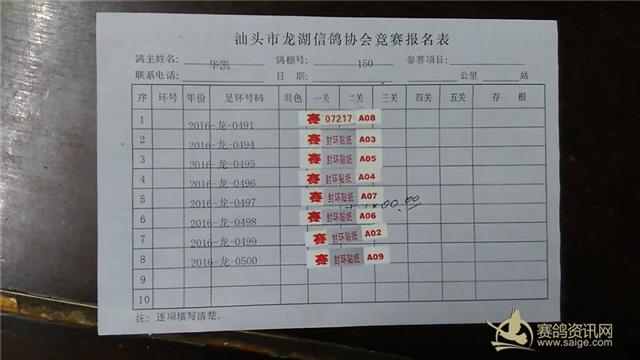 汕头市龙湖信鸽协会竞赛报名表
鸽主姓名: 华凯 鸽棚号: 150 参赛项目:
联系电话: 日 期: 公里 站
序 环号 年份 足环号码 羽色 一关 二关 三关 四关 五关 存 根
1 2016-龙-0491 赛 07217 A08
2 2016-龙-0494 赛 封环贴纸 A03
3 2016-龙-0495 赛 封环贴纸 A05
4 2016-龙-0496 赛 封环贴纸 A04
5 2016-龙-0497 赛 封环贴纸 A07
6 2016-龙-0498 赛 封环贴纸 A06
7 2016-龙-0499 赛 封环贴纸 A02
8 2016-龙-0500 赛 封环贴纸 A09
9
10
注: 逐项填写清楚.
赛鸽资讯网
www.saige.com